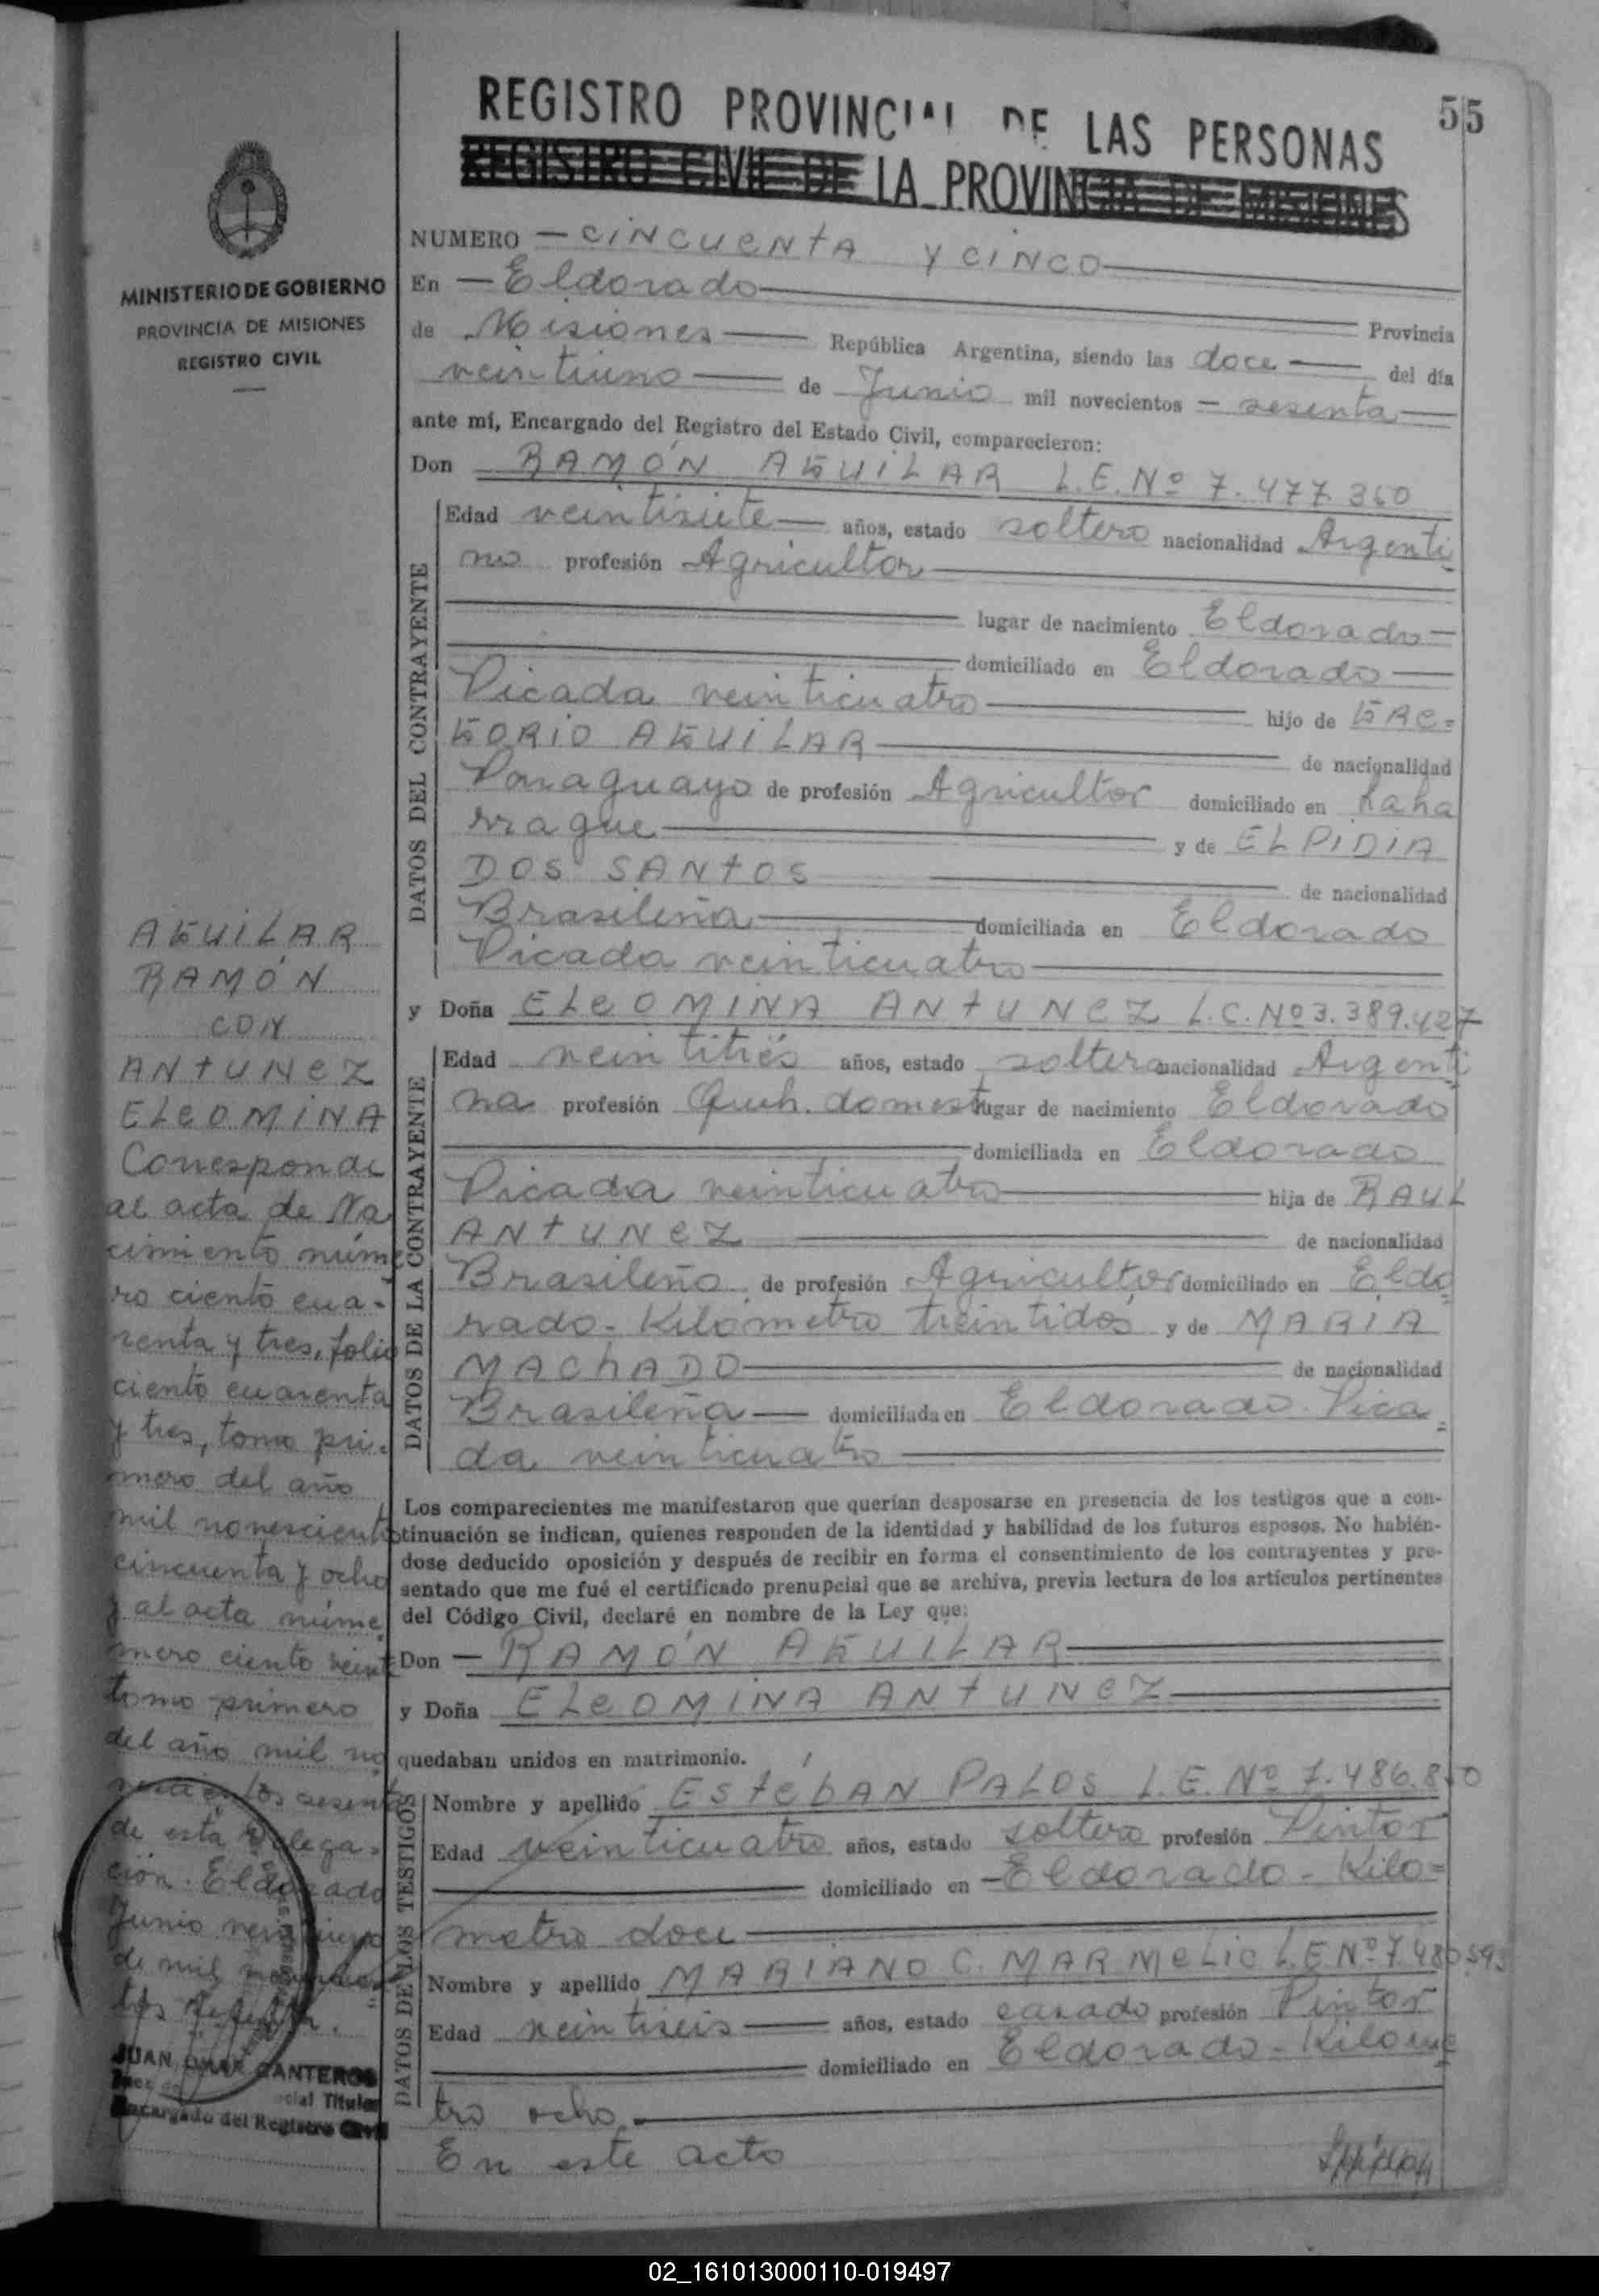 55
REGISTRO PROVINCIAL DE LAS PERSONAS
REGISTRO CIVIL DE LA PROVINCIA DE MISIONES
MINISTERIO DE GOBIERNO
PROVINCIA DE MISIONES
REGISTRO CIVIL
NUMERO — CINCUENTA Y CINCO
En — Eldorado — Provincia
de Misiones — República Argentina, siendo las doce — del día
veintiuno — de Junio mil novecientos — sesenta —
ante mí, Encargado del Registro del Estado Civil, comparecieron:
Don RAMÓN AGUILAR L.E. Nº 7.477.360
DATOS DEL CONTRAYENTE
Edad veintisiete — años, estado soltero nacionalidad Argenti
no profesión Agricultor
lugar de nacimiento Eldorado —
domiciliado en Eldorado —
Picada veinticuatro — hijo de GRE=
GORIO AGUILAR — de nacionalidad
Paraguayo de profesión Agricultor domiciliado en
y de ELPIDIA
DOS SANTOS — de nacionalidad
Brasileña — domiciliada en Eldorado
Picada veinticuatro —
y Doña ELEOMINA ANTUNEZ L.C. Nº 3.389.427
DATOS DE LA CONTRAYENTE
Edad veintitrés años, estado soltera nacionalidad Argenti
na profesión Queh. domest lugar de nacimiento Eldorado
domiciliada en Eldorado
Picada veinticuatro — hija de RAUL
ANTUNEZ — de nacionalidad
Brasileño de profesión Agricultor domiciliado en Eldo
rado - Kilómetro treintidós y de MARIA
MACHADO — de nacionalidad
Brasileña — domiciliada en Eldorado. Pica
da veinticuatro —
Los comparecientes me manifestaron que querían desposarse en presencia de los testigos que a con-
tinuación se indican, quienes responden de la identidad y habilidad de los futuros esposos. No habién-
dose deducido oposición y después de recibir en forma el consentimiento de los contrayentes y pre-
sentado que me fué el certificado prenupcial que se archiva, previa lectura de los artículos pertinentes
del Código Civil, declaré en nombre de la Ley que:
Don — RAMÓN AGUILAR —
y Doña ELEOMINA ANTUNEZ —
quedaban unidos en matrimonio.
DATOS DE LOS TESTIGOS
Nombre y apellido ESTEBAN PALOS L.E. Nº 7.486.8
Edad veinticuatro años, estado soltero profesión Pintor
domiciliado en — Eldorado - Kilo=
metro doce —
Nombre y apellido MARIANO C. MARMELIC L.E Nº 7.480.593
Edad veintiseis — años, estado casado profesión Pintor
domiciliado en Eldorado - Kilome
tro ocho. —
En este acto
AGUILAR
RAMÓN
CON
ANTUNEZ
ELEOMINA
Corresponde
al acta de Na
cimiento núme
ro ciento cua-
renta y tres, folio
ciento cuarenta
y tres, tomo pri-
mero del año
mil novesciento
cincuenta y ocho
y al acta núme
mero ciento veinte
tomo primero
del año mil no
vecientos sesenta
de esta Delega-
ción. Eldorado
Junio veintiuno
de mil
JUAN OMAR CANTEROS
Titular
Encargado del Registro Civil
02_161013000110-019497